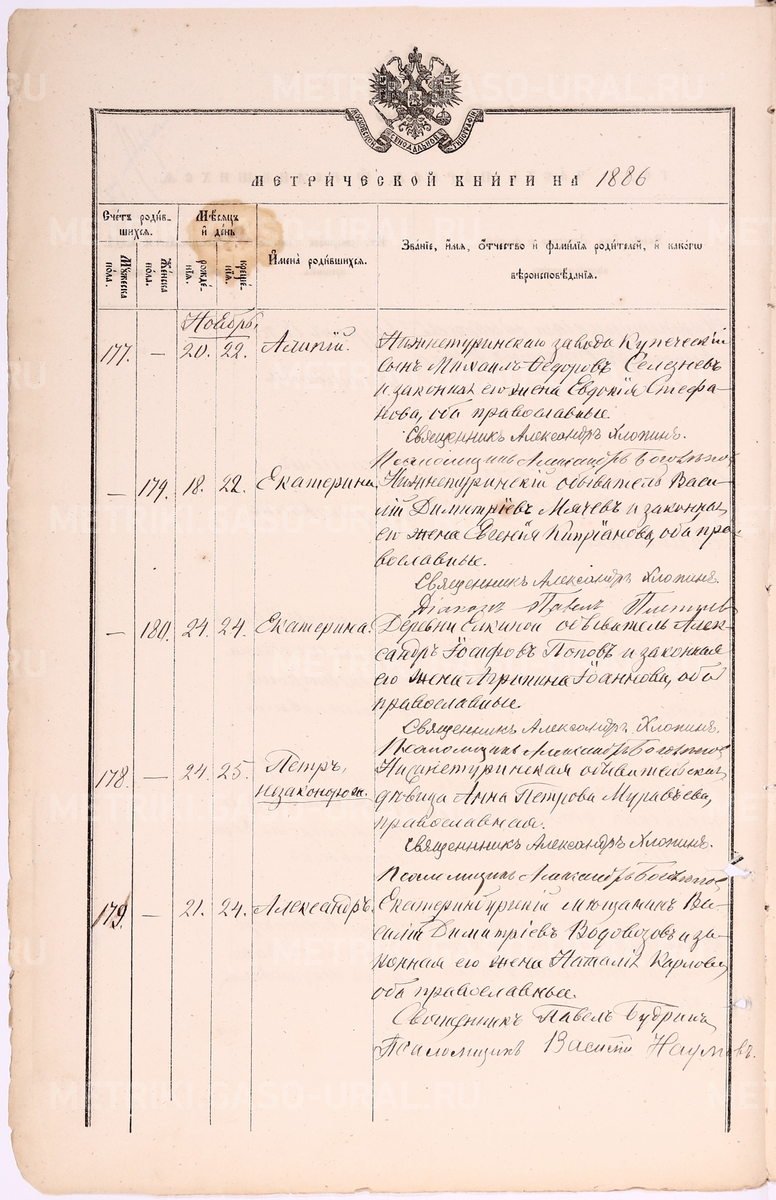 МОСКОВСКОЙ СѴНОДАЛЬНОЙ ТИПОГРАФІИ
МЕТРИ́ЧЕСКОЙ КНИ́ГИ НА 1886
Сче́тъ роди́вшихся.
Му́жеска по́ла.
Же́нска по́ла.
Мѣ́сяцъ и́ де́нь
рожде́нїя.
креще́нїя.
И҆мена̀ роди́вшихся.
Зва́нїе, и҆́мя, ѻ҆́тчество и҆ фами́лїя роди́телей, и҆ како́гѡ
вѣроисповѣ́данїя.
Ноябрь
177. — 20. 22. Алипій. Нижнетуринскаго завода Купеческій
сынъ Михаилъ Ѳедоровъ Селезневъ
и законная его жена Евдокія Стефа-
нова, оба православные.
Священникъ Александръ Хлопинъ.
Псаломщикъ Александръ
— 179. 18. 22. Екатерина Нижнетуринскій обыватель Васи-
лій Димитріевъ Мячевъ и законная
его жена Евгенія Кипріанова, оба пра-
вославные.
Священникъ Александръ Хлопинъ.
Діаконъ Павелъ
— 180. 24. 24. Екатерина. Деревни Елкиной обыватель Алек-
сандръ Іосифовъ Поповъ и законная
его жена Агрипина Іоаннова, оба
православные.
Священникъ Александръ Хлопинъ.
Псаломщикъ Александръ
178. — 24. 25. Петръ, Нижнетуринская обывательская
незаконорож. дѣвица Анна Петрова Муравьева,
православная.
Священникъ Александръ Хлопинъ.
Псаломщикъ Александръ
179. — 21. 24. Александръ. Екатеринбургскій мѣщанинъ Ва-
силій Димитріевъ Водовозовъ и за-
конная его жена Наталія Карлова,
оба православные.
Священникъ Павелъ Будринъ
Псаломщикъ Василій Наумовъ.